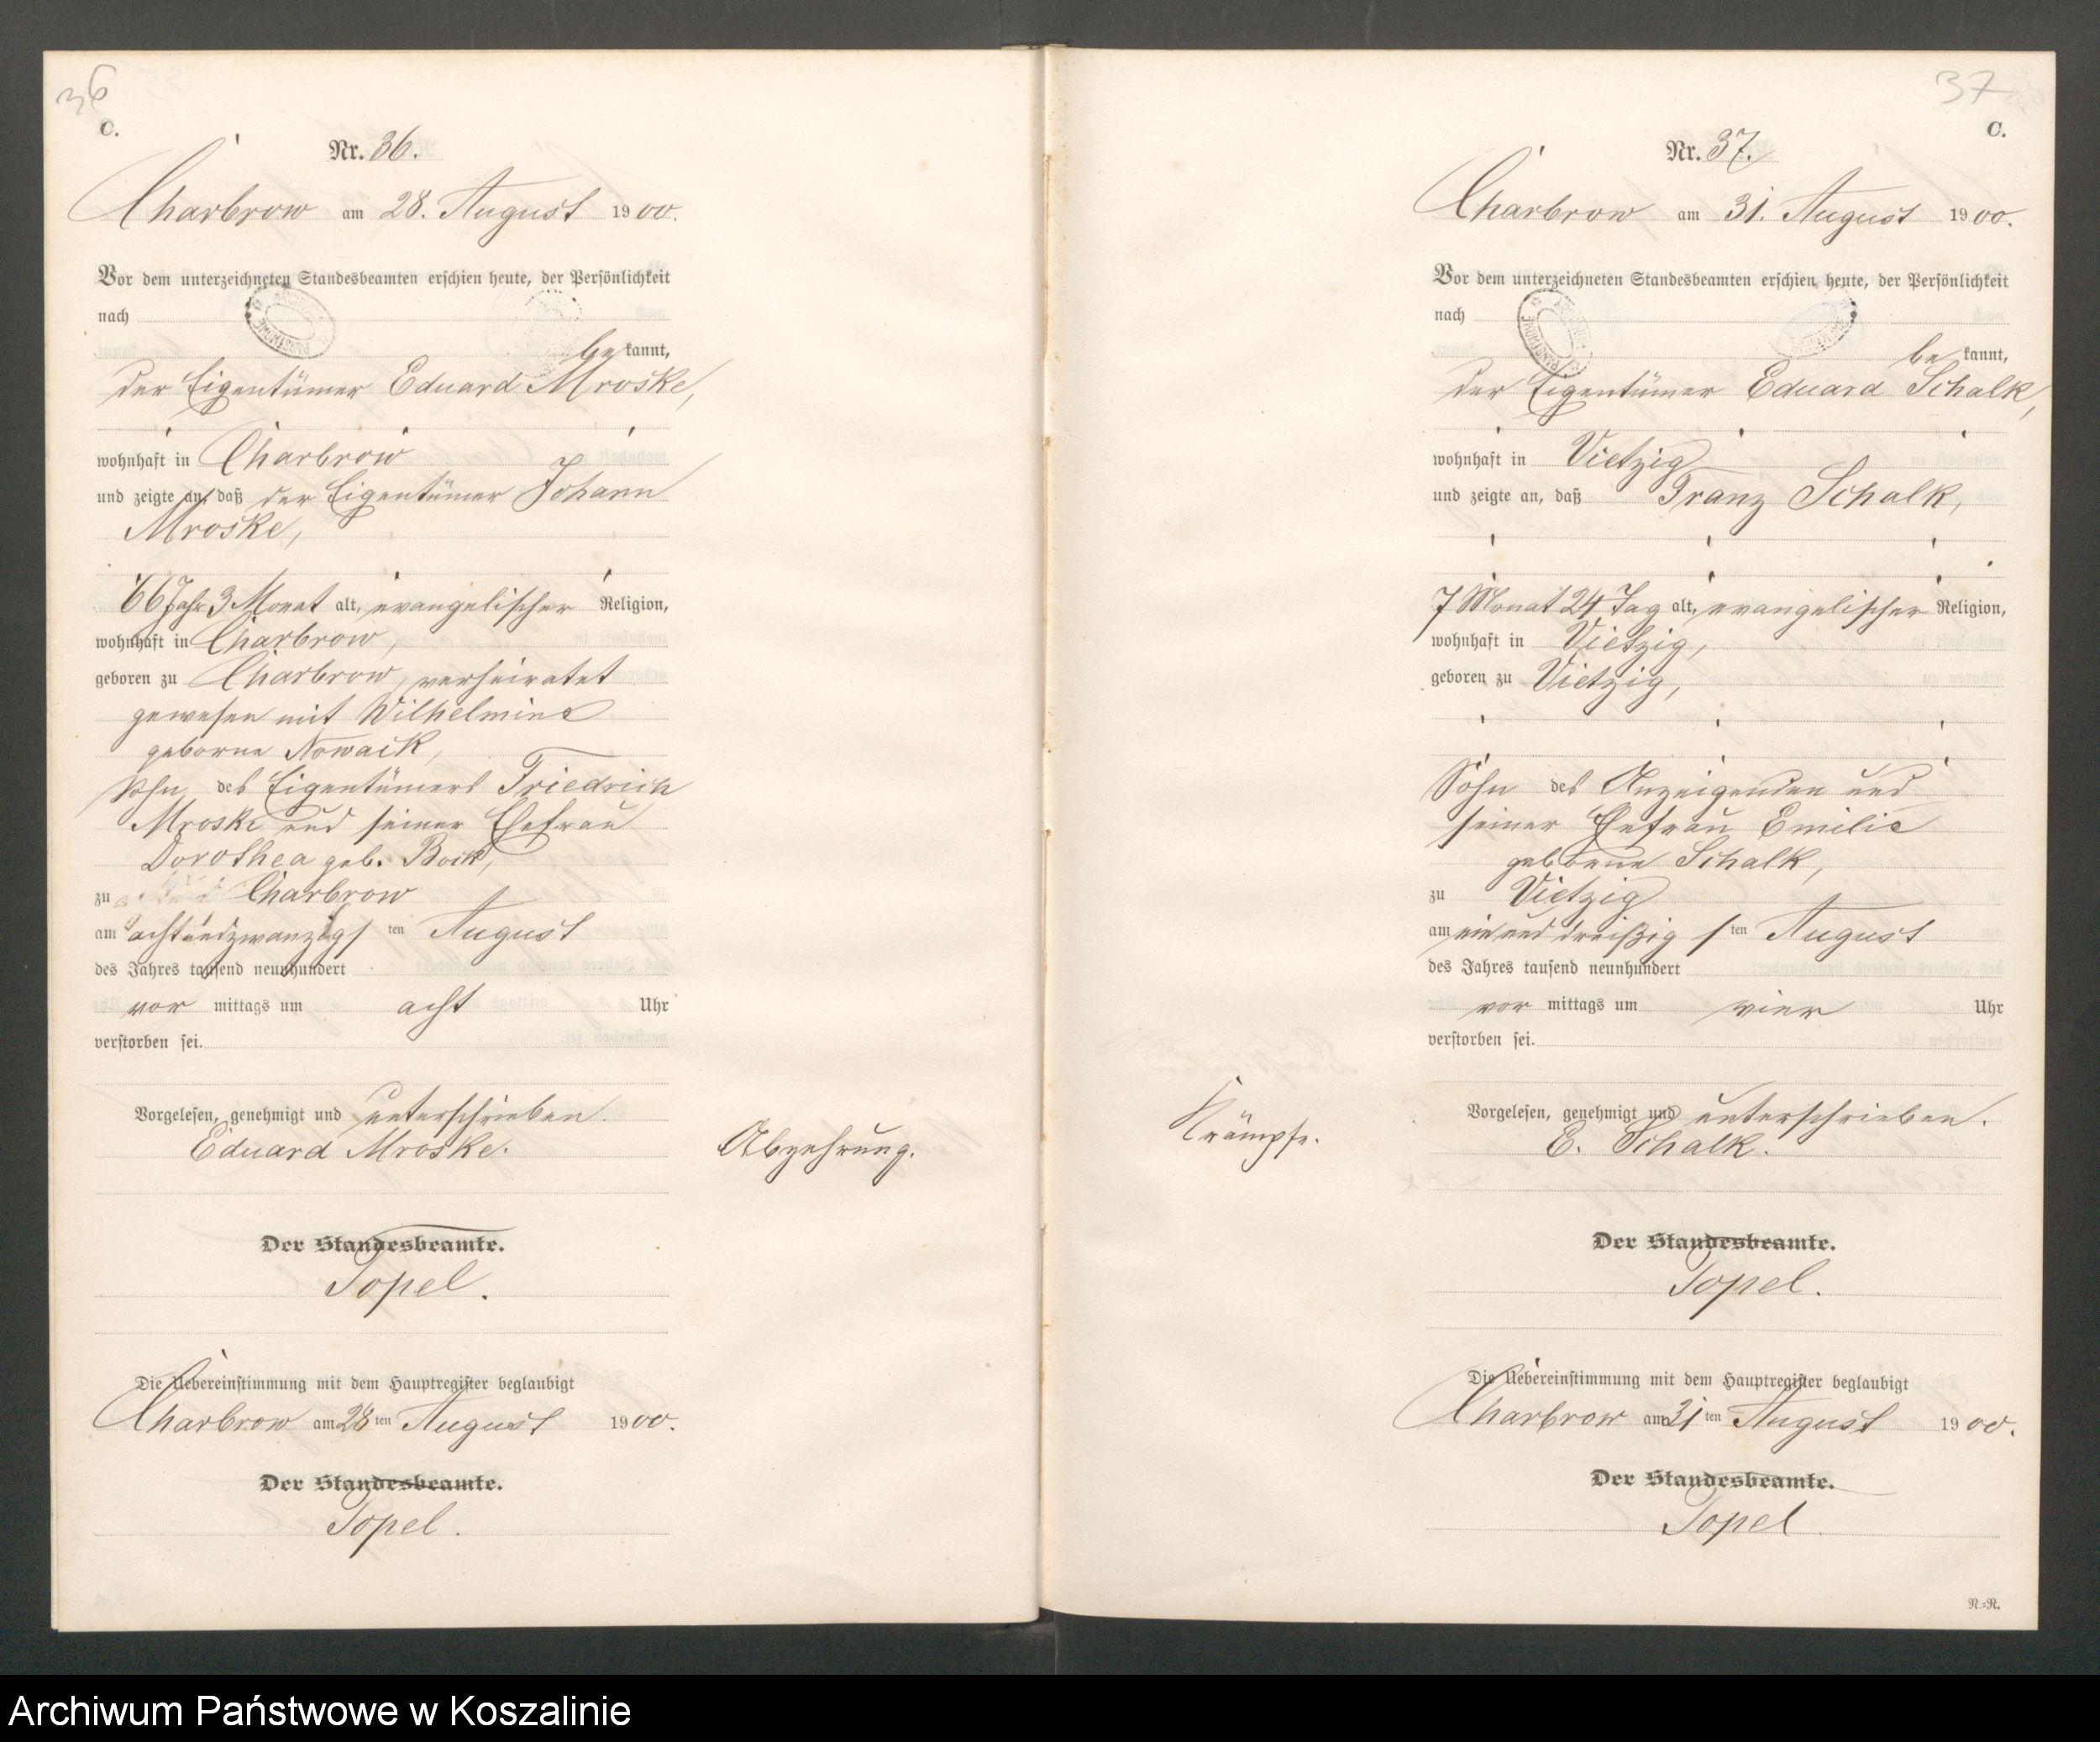 36
C.
Nr. 36.
Charbrow am 28. August 1900.
Vor dem unterzeichneten Standesbeamten erschien heute, der Persönlichkeit
nach
bekannt,
der Eigentümer Eduard Mroske,
wohnhaft in Charbrow
und zeigte an, daß der Eigentümer Johann
Mroske,
66 Jahr 3 Monat alt, evangelischer Religion,
wohnhaft in Charbrow,
geboren zu Charbrow, verheiratet
gewesen mit Wilhelmine
geborne Nowack,
Sohn des Eigentümers Friedrich
Mroske und seiner Ehefrau
Dorothea geb. Bock,
zu Charbrow
am achtundzwanzigsten August
des Jahres tausend neunhundert
vor mittags um acht Uhr
verstorben sei.
Vorgelesen, genehmigt und unterschrieben.
Eduard Mroske.
Abzehrung.
Der Standesbeamte.
Topel.
Die Uebereinstimmung mit dem Hauptregister beglaubigt
Charbrow am 28 ten August 1900.
Der Standesbeamte.
Topel.
37
C.
Nr. 37.
Charbrow am 31. August 1900.
Vor dem unterzeichneten Standesbeamten erschien heute, der Persönlichkeit
nach
bekannt,
der Eigentümer Eduard Schalk,
wohnhaft in Vietzig
und zeigte an, daß Franz Schalk,
7 Monat 24 Tag alt, evangelischer Religion,
wohnhaft in Vietzig,
geboren zu Vietzig,
Sohn des Anzeigenden und
seiner Ehefrau Emilie
geborne Schalk,
zu Vietzig
am einunddreißigsten August
des Jahres tausend neunhundert
vor mittags um vier Uhr
verstorben sei.
Vorgelesen, genehmigt und unterschrieben.
E. Schalk.
Krämpfe.
Der Standesbeamte.
Topel.
Die Uebereinstimmung mit dem Hauptregister beglaubigt
Charbrow am 31 ten August 1900.
Der Standesbeamte.
Topel
N.=R.
Archiwum Państwowe w Koszalinie